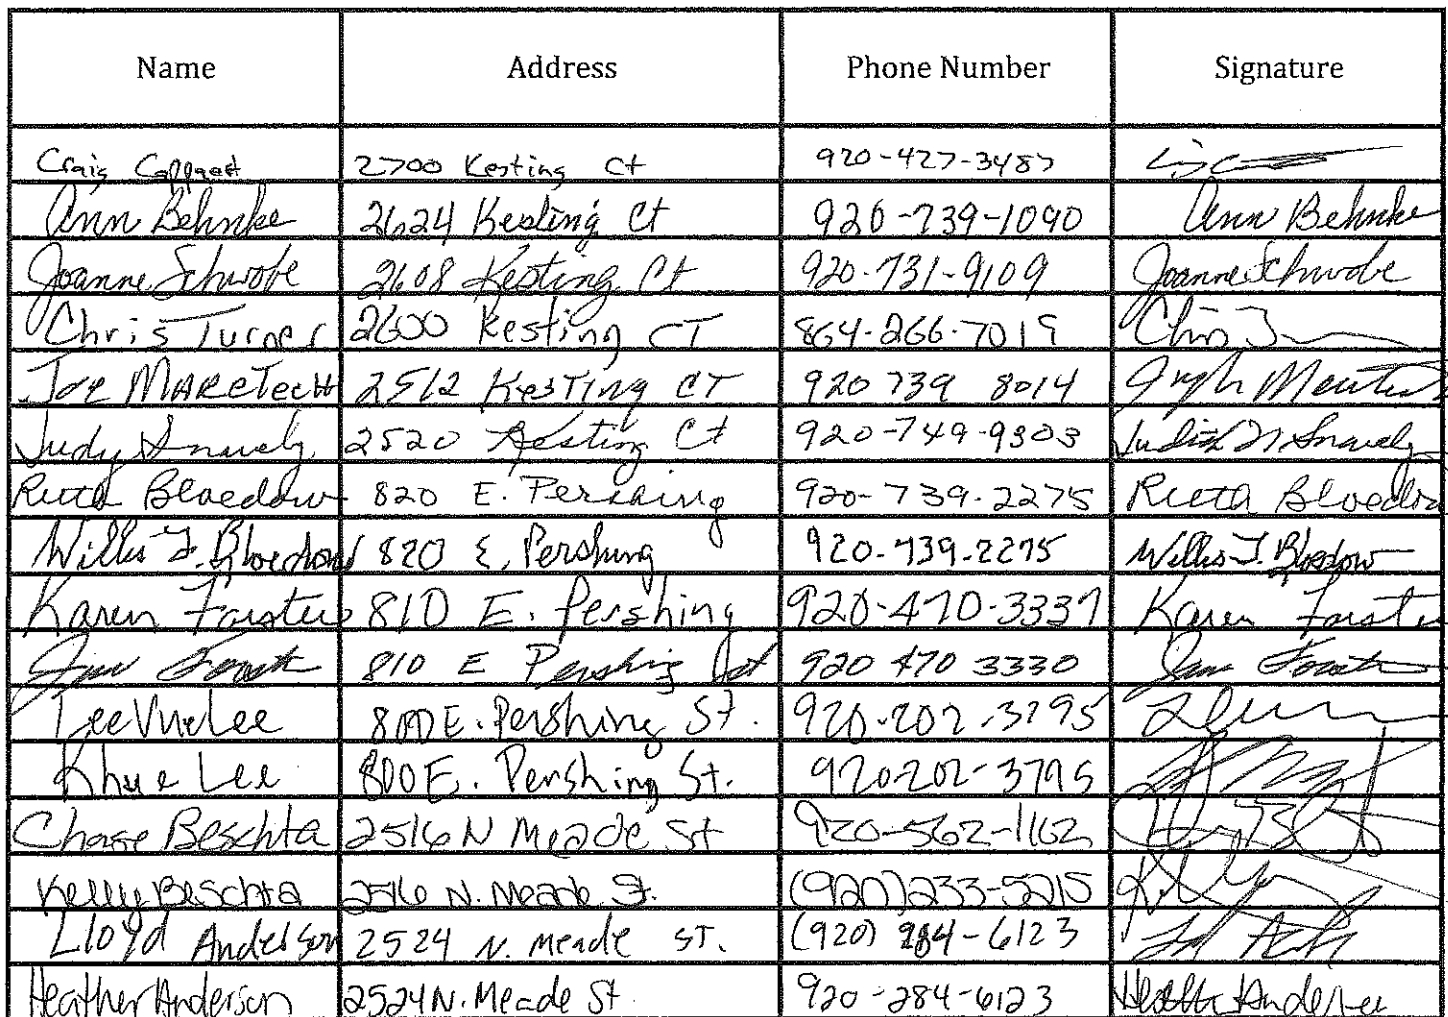 Name Address Phone Number Signature
Craig 2700 Kesting Ct 920-427-3487
Ann Behnke 2624 Kesting Ct 920-739-1090 Ann Behnke
Joanne Schwobe 2608 Kesting Ct 920-731-9109 Joanne Schwobe
Chris Turner 2600 Kesting CT 864-266-7019 Chris
Joe MARCTecH 2512 KesTing CT 920 739 8014
Judy Snavely 2520 Kesting Ct 920-749-9303 Judith Snavely
Ruth Bloedow 820 E. Pershing 920-739-2275 Ruth Bloedow
Willis J. Bloedow 820 E. Pershing 920-739-2275 Willis J. Bloedow
Karen Forster 810 E. Pershing 920-470-3337 Karen Forster
Jim 810 E Pershing 920 470 3330 Jim
Lee Vue Lee 800 E. Pershing St. 920-202-3795
Khue Lee 800 E. Pershing St. 920-202-3795
Chase Beschta 2516 N Meade St 920-562-1162
Kelly Beschta 2516 N. Meade St. (920) 233-5215
Lloyd Anderson 2524 N. Meade ST. (920) 284-6123
Heather Anderson 2524 N. Meade St. 920-284-6123 Heather Anderson